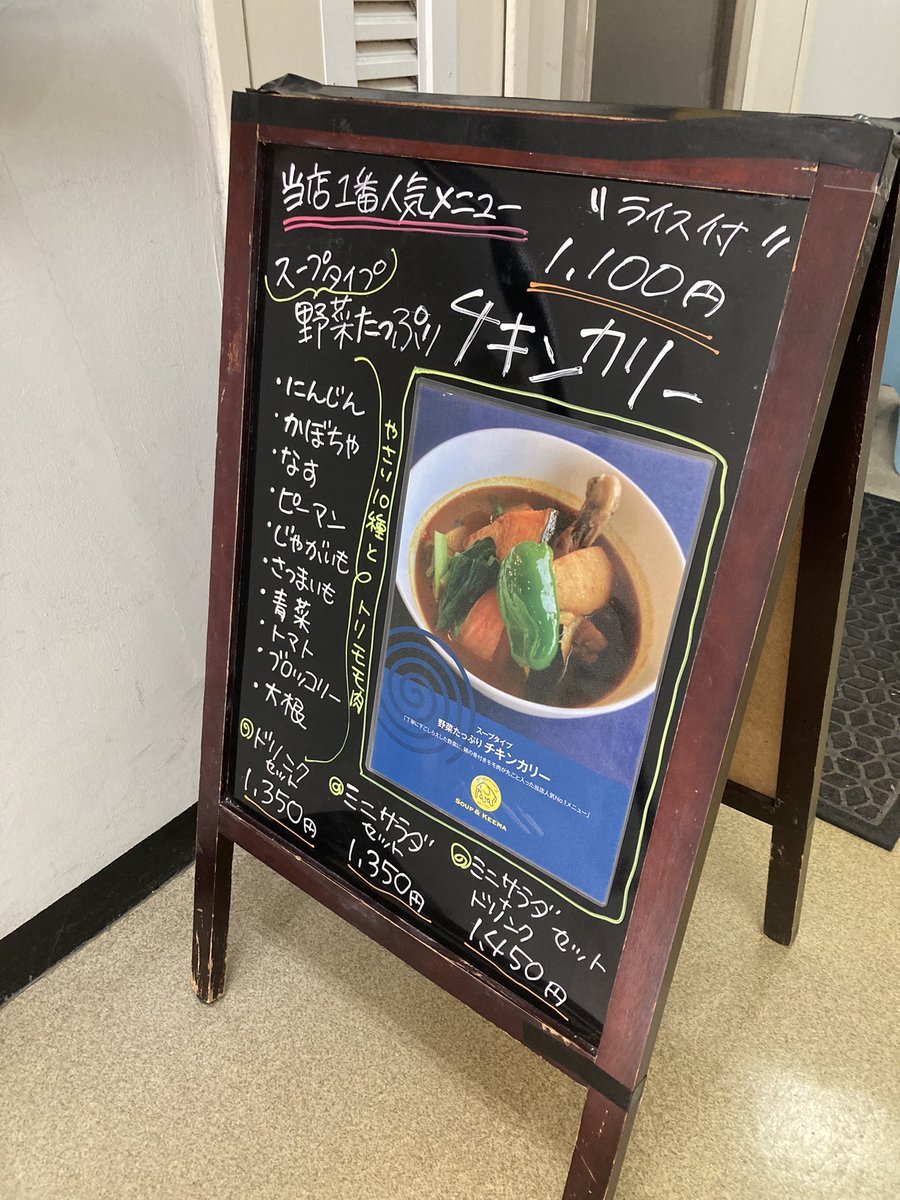 当店1番人気メニュー
〝ライス付〟
1,100円
スープタイプ
野菜たっぷり チキンカリー
・にんじん
・かぼちゃ
・なす
・ピーマン
・じゃがいも
・さつまいも
・青菜
・トマト
・ブロッコリー
・大根
やさい10種とトリモモ肉
スープタイプ
野菜たっぷり チキンカリー
「丁寧に下ごしらえした野菜に、鶏の骨付きモモ肉が丸ごと入った当店人気No.1メニュー」
SOUP & KEEMA
ドリンク
セット
1,350円
ミニサラダ
セット
1,350円
ミニサラダ
ドリンク セット
1,450円